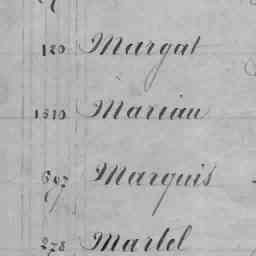 120 Margat
1510 Mariau
697 Marquis
278 Martel